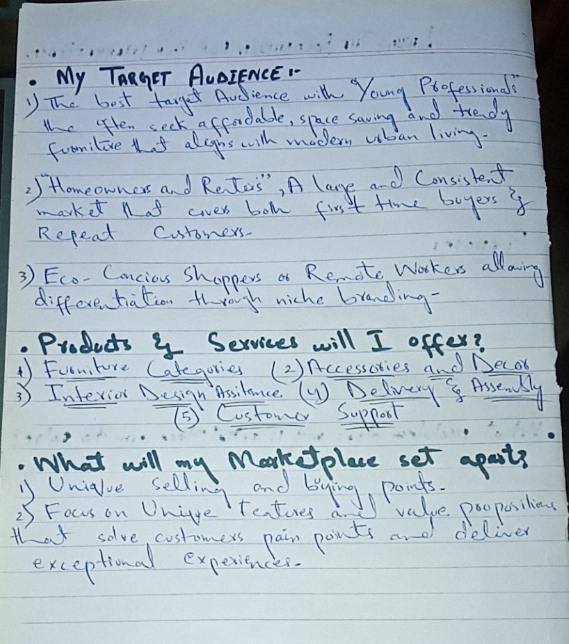 • My TARGET AUDIENCE :-
1) The best target Audience with "Young Professionals"
the often seek affordable, space saving and trendy
furniture that aligns with modern urban living.
2) "Homeowners and Renters", A large and Consistent
market that covers both first time buyers &
Repeat Customers.
3) Eco-Concious Shoppers or Remote Workers allowing
differentiation through niche branding.
• Products & Services will I offer?
1) Furniture Categories (2) Accessories and Decor
3) Interior Design Assitance. (4) Delivery & Assembly
(5) Customer Support
• What will my Marketplace set apart?
1) Unique Selling and buying points.
2) Focus on Unique features and value propositions
that solve customers pain points and deliver
exceptional experiences.